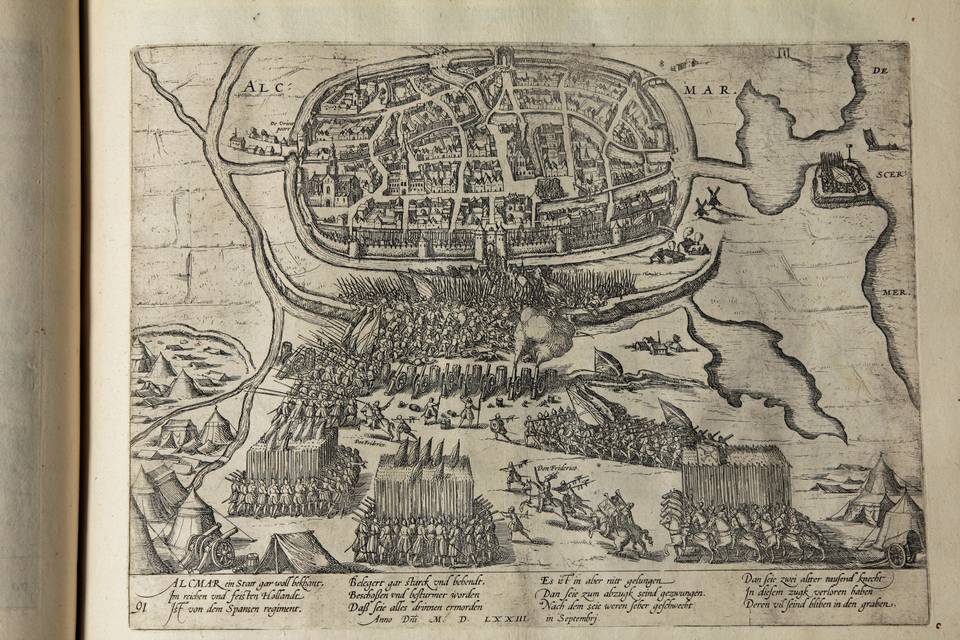 ALC
MAR.
DE
SCER
MER.
Don Frederico.
Don Friderico.
ALCMAR ein Statt gar woll bekhant,
Im reichen vnd feisten Hollande
Ist von dem Spansen regiment.
Belegert gar starck vnd behendt.
Beschossen vnd besturmet worden
Dass seie alles drinnen ermorden
Es ist in aber nitt gelungen
Dan seie zum abzugk seind gezwungen.
Nach dem seie weren seher geschwecht
Dan seie zwei alter tausend knecht
In diesem zugk verloren haben
Deren vil seind bliben in den graben.
Anno Dñi M. D. LXXIII in Septembrj.